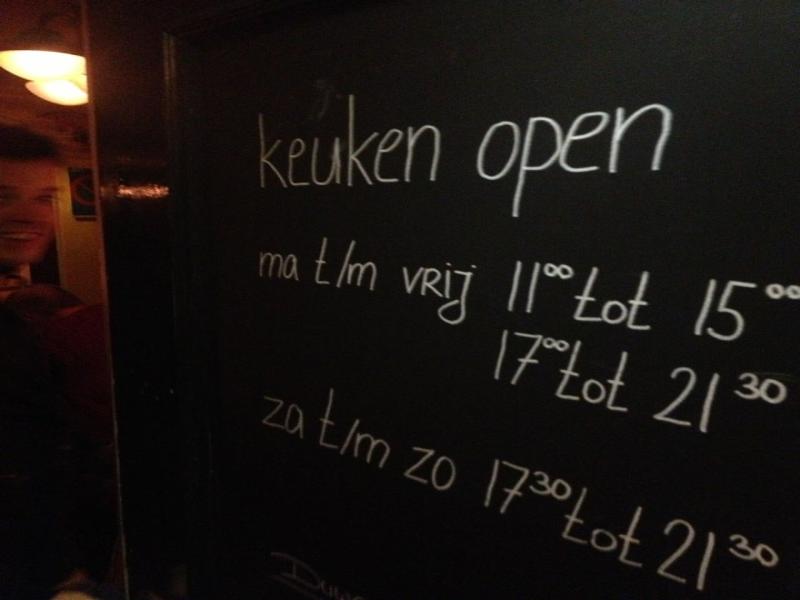 keuken open
ma t/m vrij 11⁰⁰ tot 15⁰⁰
17⁰⁰ tot 21³⁰
za t/m zo 17³⁰ tot 21³⁰